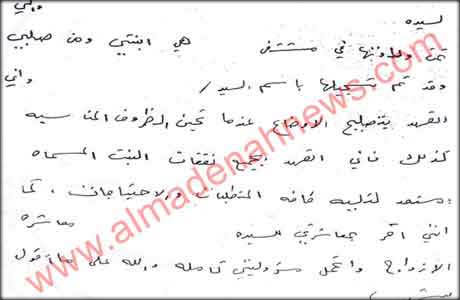 واني
لسيده
تمت ولادتها في مستشفى هي ابنتي ومن صلبي
وقد تم تسجيلها باسم السيد / واني
اتعهد بتصليح الاوضاع عندما تحين الظروف المناسبه
كذلك فاني اتعهد بجميع نفقات البنت المسماه
مستعد لتلبية كافه المتطلبات والاحتياجات ، كما
انني اقر بمعاشرتي للسيده معاشره
الازواج واتحمل مسؤوليتي كامله والله على ما اقول
www.almadenahnews.com